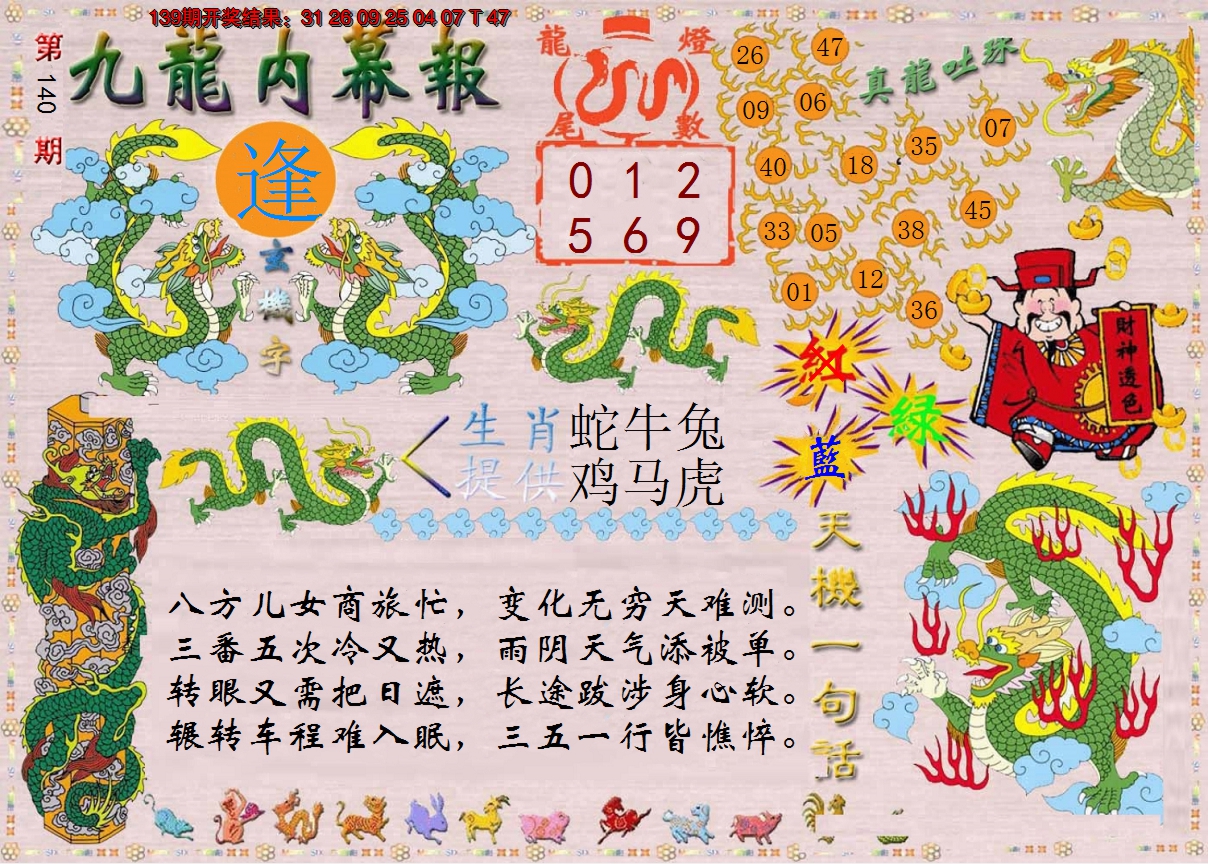 139期开奖结果：31 26 09 25 04 07 T 47
第140期
九龍内幕報
逢
玄機字
龍燈
尾數
0 1 2
5 6 9
真龍吐珠
26
47
09
06
07
35
40
18
45
33
05
38
12
01
36
財神透色
紅
綠
藍
生肖
提供
蛇牛兔
鸡马虎
天機一句話
八方儿女商旅忙，变化无穷天难测。
三番五次冷又热，雨阴天气添被单。
转眼又需把日遮，长途跋涉身心软。
辗转车程难入眠，三五一行皆憔悴。